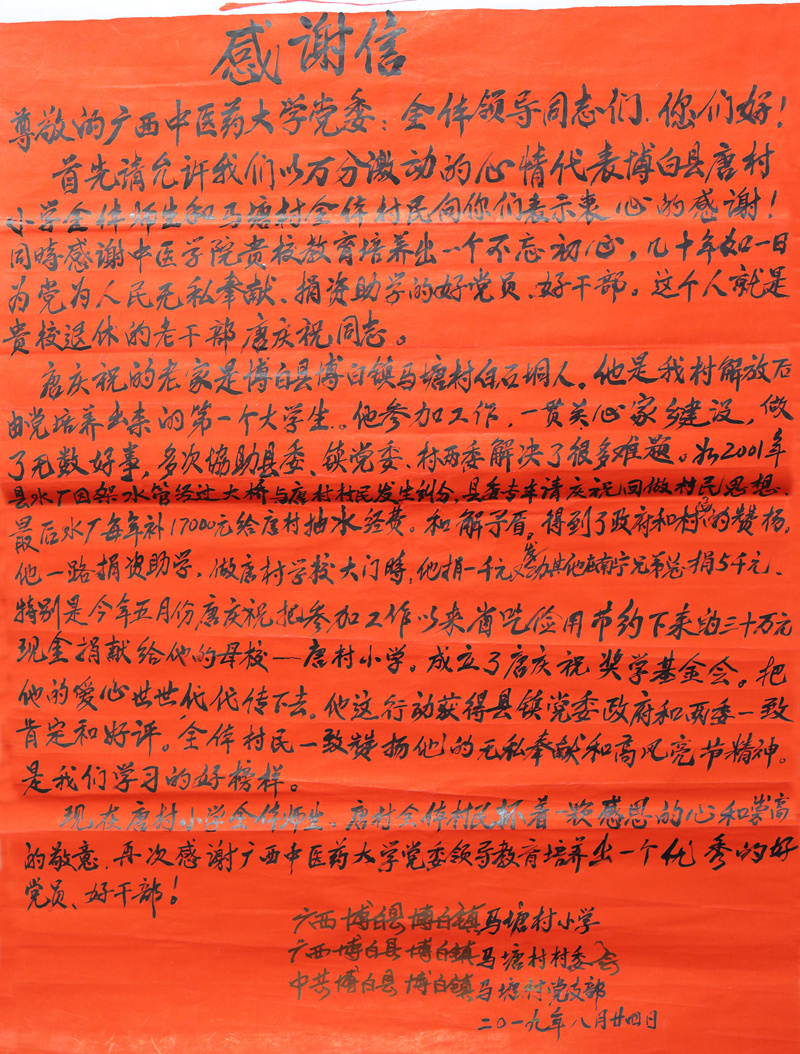 感谢信
尊敬的广西中医药大学党委：全体领导同志们，你们好！
首先请允许我们以万分激动的心情代表博白县唐村
小学全体师生和马塘村全体村民向你们表示衷心的感谢！
同時感谢中医学院贵校教育培养出一个不忘初心，几十年如一日
为党为人民无私奉献、捐资助学的好党员、好干部。这个人就是
贵校退休的老干部唐庆祝同志。
唐庆祝的老家是博白县博白镇马塘村白石垌人。他是我村解放后
由党培养出来的第一个大学生。他参加工作，一贯关心家乡建设，做
了无数好事，多次協助县委、镇党委、村两委解决了很多难题。如2001年
县水厂因架水管经过大桥与唐村村民发生纠分，县委专车请庆祝回做村民思想、
最后水厂每年补17000元给唐村抽水经费。和解矛盾。得到了政府和村民的赞扬，
他一路捐资助学，做唐村学校大门時，他捐一千元发动其他在南宁兄弟捐5千元、
特别是今年五月份唐庆祝把参加工作以来省吃俭用节约下来的三十万元
现金捐献给他的母校——唐村小学。成立了唐庆祝奖学基金会。把
他的爱心世世代代传下去。他这行动获得县镇党委政府和两委一致
肯定和好评。全体村民一致赞扬他的无私奉献和高风亮节精神。
是我们学习的好榜样。
现在唐村小学全体师生、唐村全体村民抔着一颗感恩的心和崇高
的敬意，再次感谢广西中医药大学党委领导教育培养出一个优秀的好
党员、好干部！
广西博白县博白镇马塘村小学
广西博白县博白镇马塘村村委会
中共博白县博白镇马塘村党支部
二〇一九年八月廿四日